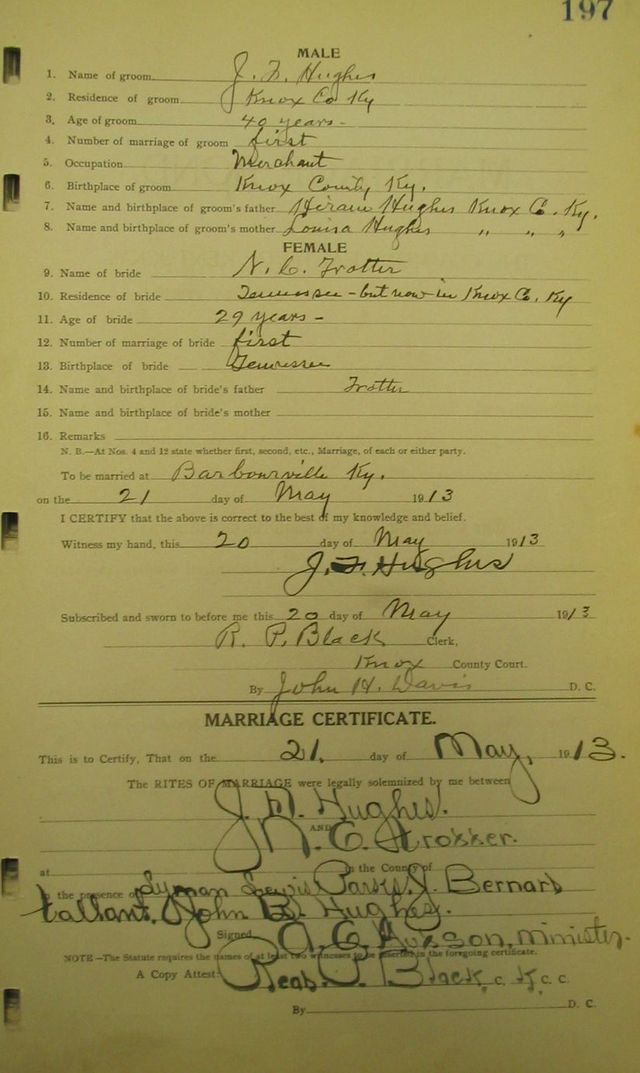 197
MALE
1. Name of groom J. F. Hughes
2. Residence of groom Knox Co Ky
3. Age of groom 40 years -
4. Number of marriage of groom first
5. Occupation Merchant
6. Birthplace of groom Knox County Ky.
7. Name and birthplace of groom's father Hiram Hughes Knox Co. Ky.
8. Name and birthplace of groom's mother Louisa Hughes " " "
FEMALE
9. Name of bride N. C. Trotter
10. Residence of bride Tennessee - but now in Knox Co. Ky
11. Age of bride 29 years -
12. Number of marriage of bride first
13. Birthplace of bride Tennessee
14. Name and birthplace of bride's father Trotter
15. Name and birthplace of bride's mother
16. Remarks
N. B.—At Nos. 4 and 12 state whether first, second, etc., Marriage, of each or either party.
To be married at Barbourville Ky.
on the 21 day of May 1913
I CERTIFY that the above is correct to the best of my knowledge and belief.
Witness my hand, this 20 day of May 1913
J. F. Hughes
Subscribed and sworn to before me this 20 day of May 1913
R. P. Black Clerk,
Knox County Court.
By John H. Davis D. C.
MARRIAGE CERTIFICATE.
This is to Certify, That on the 21. day of May, 1913.
The RITES OF MARRIAGE were legally solemnized by me between
J. Hughes.
AND N. C.
at in the County of
in the presence of Lyman Lewis J. Bernard
John B. Hughes.
Signed A. C. Minister.
NOTE—The Statute requires the names of at least two witnesses to be inserted in the foregoing certificate.
A Copy Attest: Read. P. Black C. K. C. C.
By D. C.